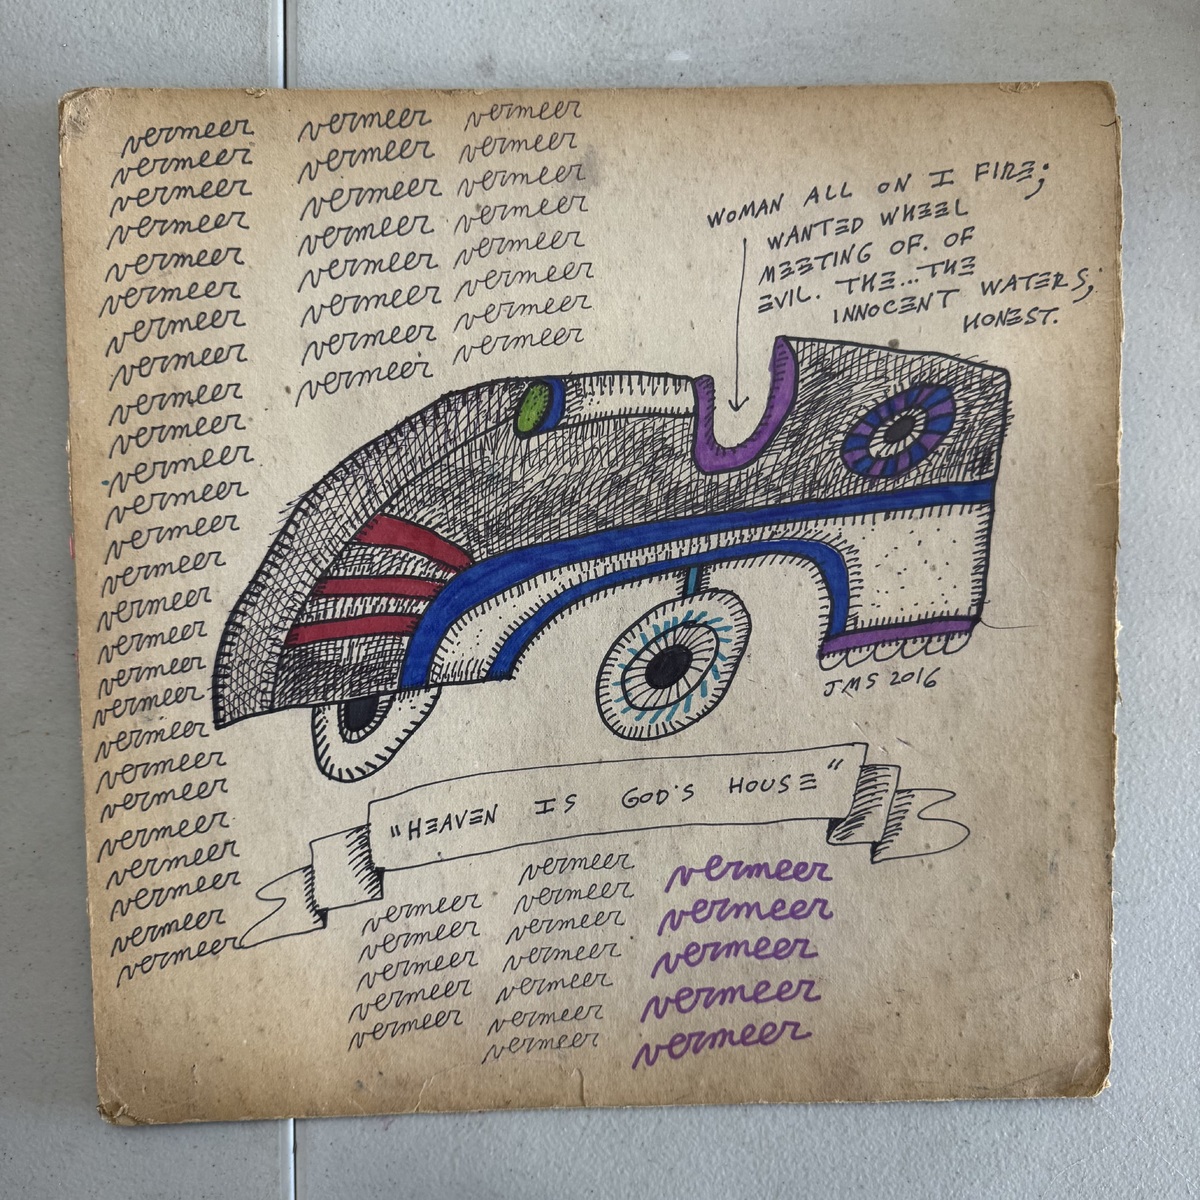 vermeer
vermeer
vermeer
vermeer
vermeer
vermeer
vermeer
vermeer
vermeer
vermeer
vermeer
vermeer
vermeer
vermeer
vermeer
vermeer
vermeer
vermeer
vermeer
vermeer
vermeer
vermeer
vermeer
vermeer
vermeer
vermeer
vermeer
vermeer
vermeer
vermeer
vermeer
vermeer
vermeer
vermeer
vermeer
vermeer
vermeer
vermeer
vermeer
vermeer
vermeer
vermeer
WOMAN ALL ON I FIRE;
WANTED WHEEL
MEETING OF. OF
EVIL. THE... THE
INNOCENT WATERS;
HONEST.
JMS 2016
"HEAVEN IS GOD'S HOUSE"
vermeer
vermeer
vermeer
vermeer
vermeer
vermeer
vermeer
vermeer
vermeer
vermeer
vermeer
vermeer
vermeer
vermeer
vermeer
vermeer
vermeer